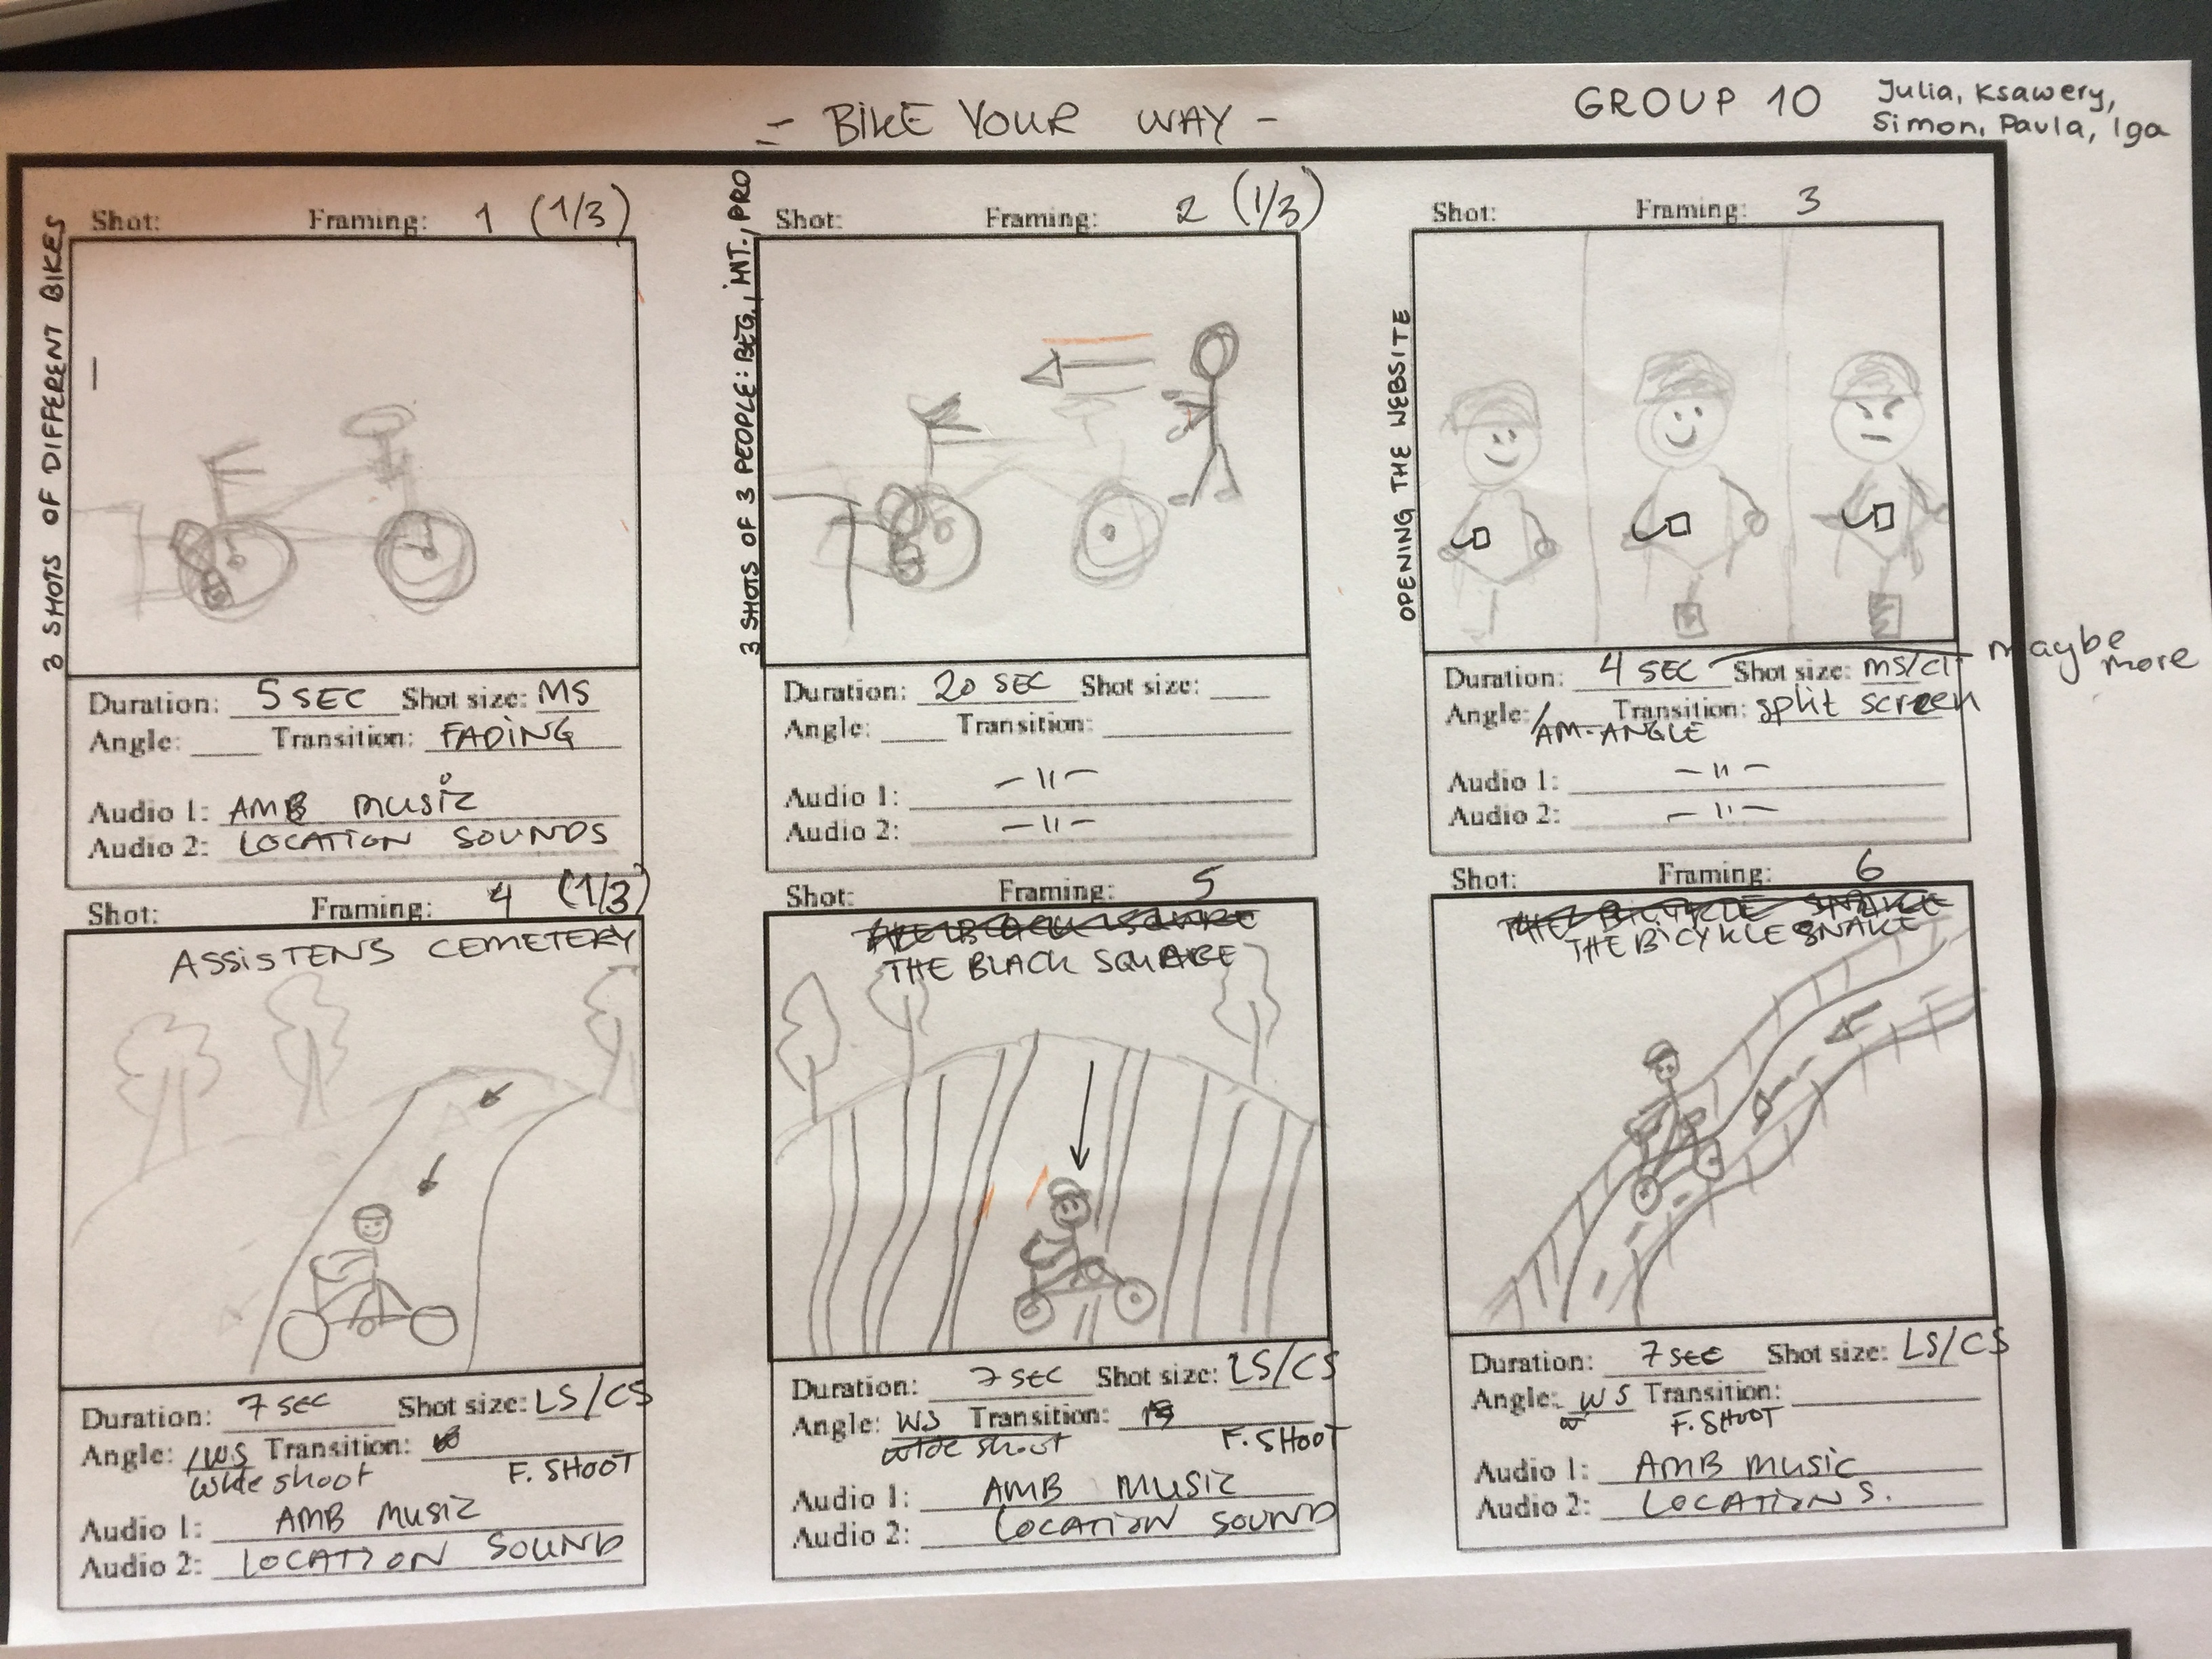 - BIKE YOUR WAY -
GROUP 10
Julia, Ksawery,
Simon, Paula, Iga
3 SHOTS OF DIFFERENT BIKES
Shot: Framing: 1 (1/3)
Duration: 5 SEC Shot size: MS
Angle: Transition: FADING
Audio 1: AMB MUSIC
Audio 2: LOCATION SOUNDS
3 SHOTS OF 3 PEOPLE: BEG., INT., PRO
Shot: Framing: 2 (1/3)
Duration: 20 SEC Shot size:
Angle: Transition:
Audio 1: —11—
Audio 2: —11—
OPENING THE WEBSITE
Shot: Framing: 3
Duration: 4 SEC Shot size: MS/
maybe
more
Angle: Transition: split screen
AM-ANGLE
Audio 1: —11—
Audio 2: —11—
Shot: Framing: 4 (1/3)
ASSISTENS CEMETERY
Duration: 7 SEC Shot size: LS/CS
Angle: WS Transition:
wide shoot F. SHOOT
Audio 1: AMB MUSIC
Audio 2: LOCATION SOUND
Shot: Framing: 5
THE BLACK SQUARE
THE BLACK SQUARE
Duration: 7 SEC Shot size: LS/CS
Angle: WS Transition:
wide shoot F. SHOOT
Audio 1: AMB MUSIC
Audio 2: LOCATION SOUND
Shot: Framing: 6
THE BICYCLE SNAKE
THE BICYKLE SNAKE
Duration: 7 SEC Shot size: LS/CS
Angle: WS Transition:
F. SHOOT
Audio 1: AMB MUSIC
Audio 2: LOCATION S.